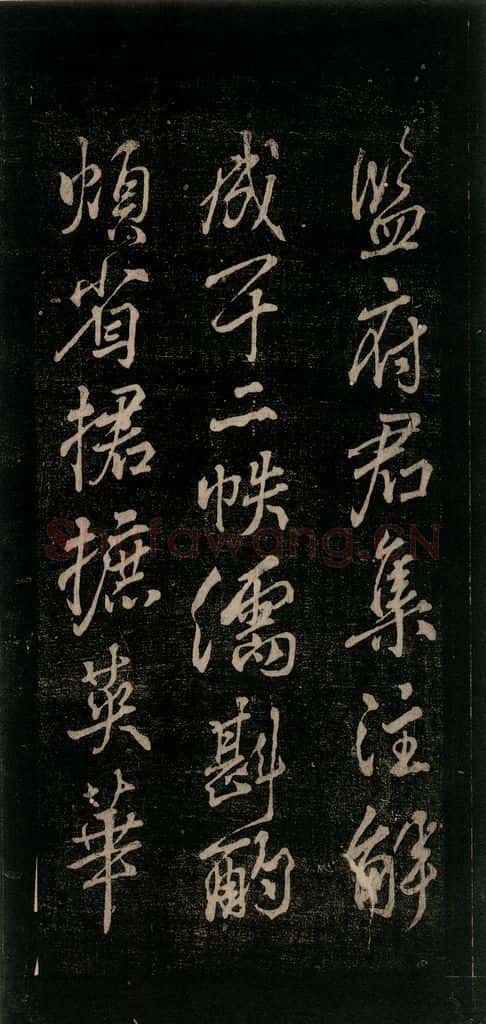 監府君集注解
成于二帙儒斟酌
煩省捃摭英華
Shufawang.CN